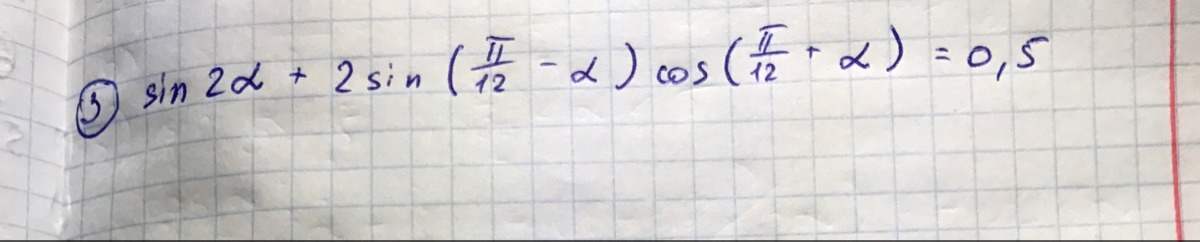 ③ sin 2α + 2 sin (π/12 - α) cos (π/12 + α) = 0,5